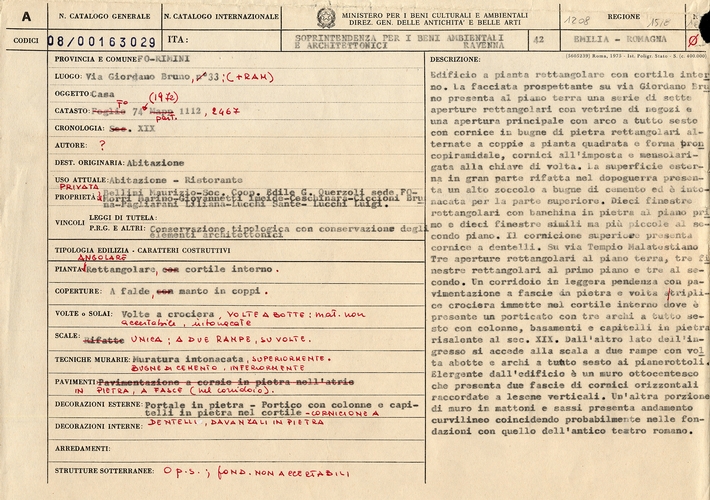 A
N. CATALOGO GENERALE
N. CATALOGO INTERNAZIONALE
MINISTERO PER I BENI CULTURALI E AMBIENTALI
DIREZ. GEN. DELLE ANTICHITA' E BELLE ARTI
1208
REGIONE
15/E
N.
CODICI
08/00163029
ITA:
SOPRINTENDENZA PER I BENI AMBIENTALI
E ARCHITETTONICI RAVENNA
42
EMILIA - ROMAGNA
PROVINCIA E COMUNE: FO-RIMINI
LUOGO: Via Giordano Bruno, n° 33; (+RAM)
OGGETTO: Casa
(1972)
CATASTO: Foglio FO 74 Mapp part. 1112, 2467
CRONOLOGIA: Sec. XIX
AUTORE: ?
DEST. ORIGINARIA: Abitazione
USO ATTUALE: Abitazione - Ristorante
PRIVATA
PROPRIETÀ: Bellini Maurizio-Soc. Coop. Edile G. Querzoli sede FO-
VINCOLI
LEGGI DI TUTELA:
P.R.G. E ALTRI: Conservazione tipologica con conservazione degli
elementi architettonici
TIPOLOGIA EDILIZIA - CARATTERI COSTRUTTIVI
ANGOLARE
PIANTA: Rettangolare, con cortile interno.
COPERTURE: A falde, con manto in coppi.
VOLTE o SOLAI: Volte a crociera, VOLTE A BOTTE: mat. non
accertabile, intonacate
SCALE: Rifatte UNICA; A DUE RAMPE, SU VOLTE.
TECNICHE MURARIE: Muratura intonacata, SUPERIORMENTE.
BUGNE DI CEMENTO, INFERIORMENTE
PAVIMENTI: Pavimentazione a corsie in pietra nell'atrio
IN PIETRA, A FASCE (nel corridoio).
DECORAZIONI ESTERNE: Portale in pietra - Portico con colonne e capi-
telli in pietra nel cortile - CORNICIONE A
DENTELLI, DAVANZALI IN PIETRA
DECORAZIONI INTERNE:
ARREDAMENTI:
STRUTTURE SOTTERRANEE: O p.s.; FOND. NON ACCERTABILI
(3605239) Roma, 1975 - Ist. Poligr. Stato - S. (c. 400.000)
DESCRIZIONE:
Edificio a pianta rettangolare con cortile inter
no. La facciata prospettante su via Giordano Bru
no presenta al piano terra una serie di sette
aperture rettangolari con vetrine di negozi e
una apertura principale con arco a tutto sesto
con cornice in bugne di pietra rettangolari al-
ternate a coppie a pianta quadrata e forma tron
copiramidale, cornici all'imposta e mensolari-
gata alla chiave di volta. La superficie ester-
na in gran parte rifatta nel dopoguerra presen-
ta un alto zoccolo a bugne di cemento ed è into-
nacata per la parte superiore. Dieci finestre
rettangolari con banchina in pietra al piano pri
mo e dieci finestre simili ma più piccole al se-
condo piano. Il cornicione superiore presenta
cornice a dentelli. Su via Tempio Malatestiano
Tre aperture rettangolari al piano terra, tre fi
nestre rettangolari al primo piano e tre al se-
condo. Un corridoio in leggera pendenza con pa-
vimentazione a fascie in pietra e volta a tripli-
ce crociera immette nel cortile interno dove è
presente un porticato con tre archi a tutto se-
sto con colonne, basamenti e capitelli in pietra
risalente al sec. XIX. Dall'altro lato dell'in-
gresso si accede alla scala a due rampe con vol
ta abotte e archi a tutto sesto ai pianerottoli.
Elergente dall'edificio è un muro ottocentesco
che presenta due fascie di cornici orizzontali
raccordate a lesene verticali. Un'altra porzione
di muro in mattoni e sassi presenta andamento
curvilineo coincidendo probabilmente nelle fon-
dazioni con quello dell'antico teatro romano.